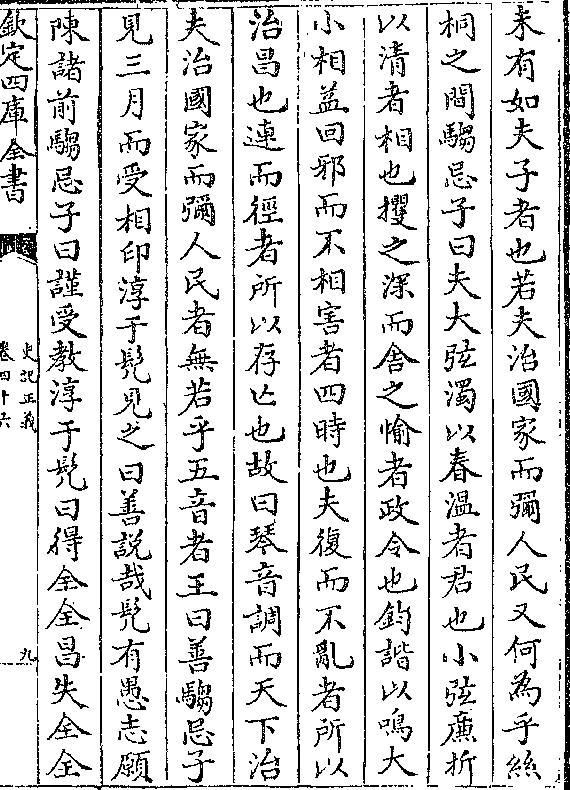 未有如夫子者也若夫治國家而彌人民又何為乎絲
桐之間騶忌子曰夫大弦濁以春溫者君也小弦廉折
以清者相也攫之深而舍之愉者政令也鈞諧以鳴大
小相益回邪而不相害者四時也夫復而不亂者所以
治昌也連而徑者所以存亡也故曰琴音調而天下治
夫治國家而彌人民者無若乎五音者王曰善騶忌子
見三月而受相印淳于髡見之曰善説哉髡有愚志願
陳諸前騶忌子曰謹受教淳于髡曰得全全昌失全全
欽定四庫全書
史記正義
卷四十六
九